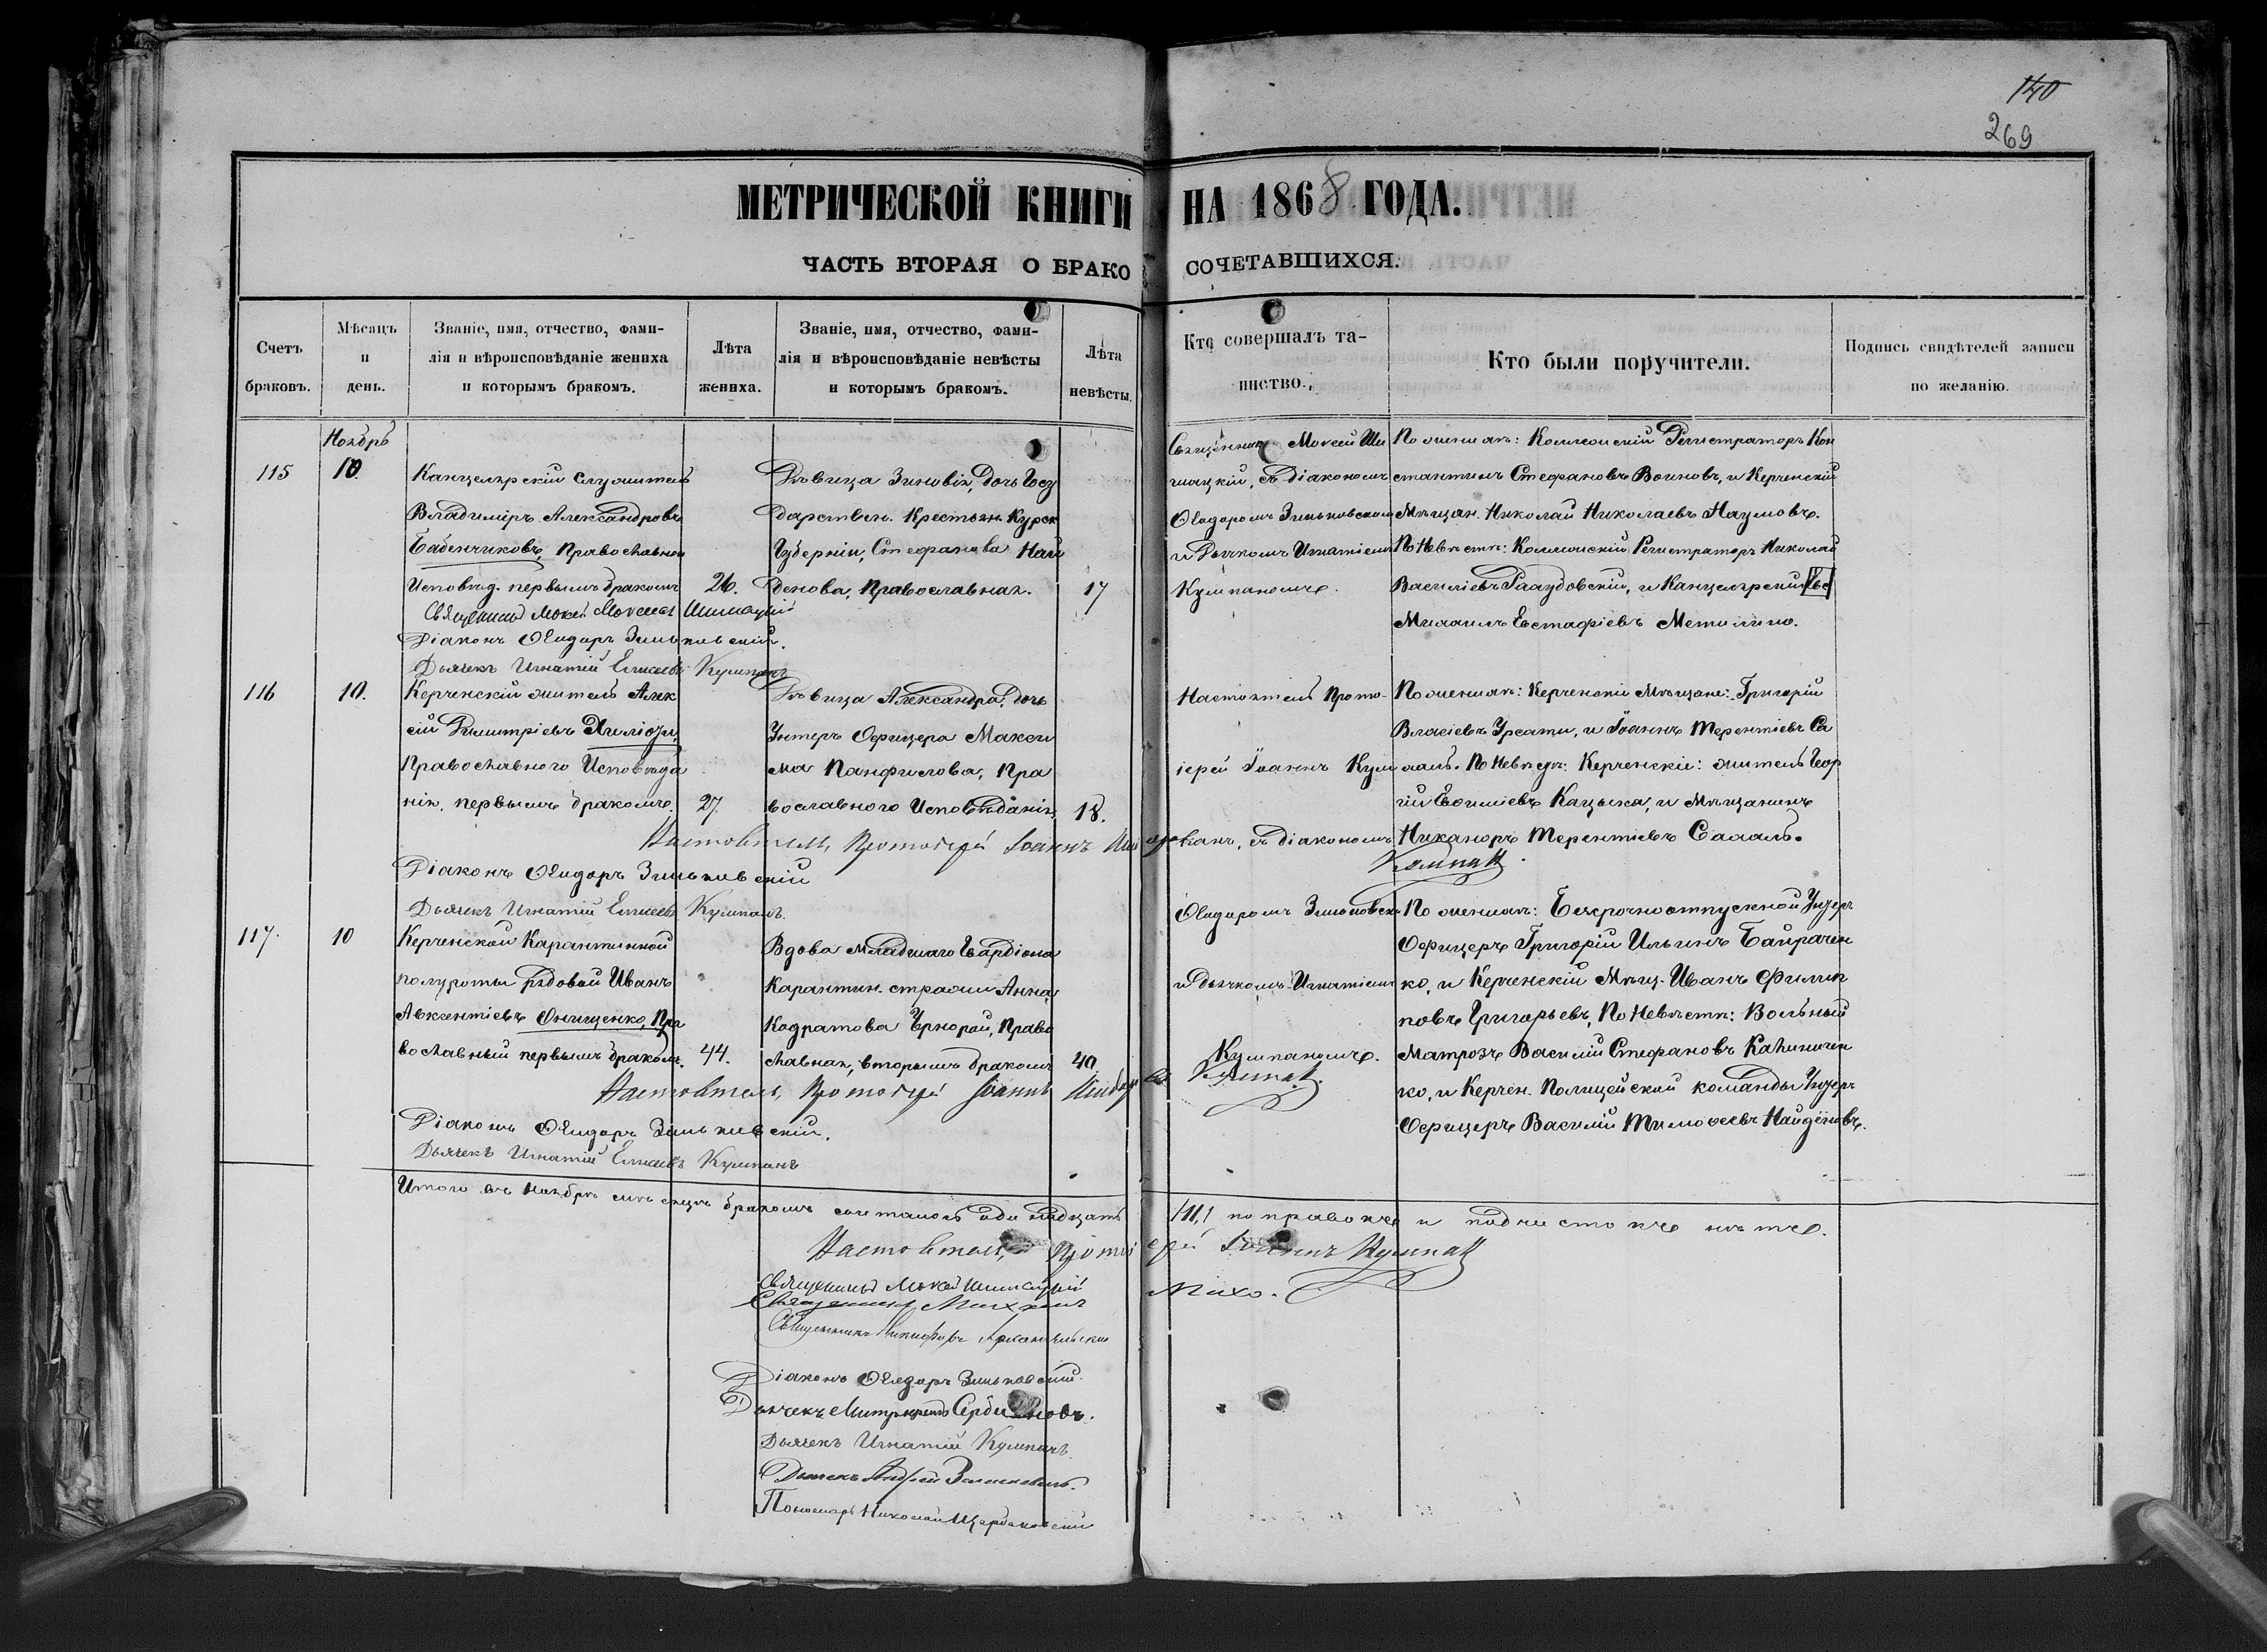 140
269
МЕТРИЧЕСКОЙ КНИГИ НА 1868 ГОДА.
ЧАСТЬ ВТОРАЯ О БРАКОСОЧЕТАВШИХСЯ.
Счетъ браковъ.
Мѣсяцъ и день.
Званіе, имя, отчество, фами-
лія и вѣроисповѣданіе жениха
и которымъ бракомъ.
Лѣта жениха.
Званіе, имя, отчество, фами-
лія и вѣроисповѣданіе невѣсты
и которымъ бракомъ.
Лѣта невѣсты.
Кто совершалъ та-
инство.
Кто были поручители.
Подпись свидѣтелей записи
по желанію.
Ноябрь
115
10.
Канцелярскій служитель
Владиміръ Александровъ
Бабенчиковъ, Православнаго
Исповѣд. первымъ бракомъ
26.
Дѣвица Зиновія, дочь Госу
дарствен. Крестьян. Курск
Губерніи, Стефанова Най
денова, Православная.
17
Священникъ Мокей Ши
мацкій, съ діакономъ
Ѳеодоромъ Зиньковским
и Дьячкомъ Игнатіем
Кумпаномъ.
По женихѣ: Коллежскій Регистраторъ Кон
стантинъ Стефановъ Воиновъ, и Керченскій
Мѣщан. Николай Николаевъ Наумовъ.
По Невѣстѣ: Коллежскій Регистраторъ Николай
Василіевъ, и Канцелярскій
Михаилъ Евстафіевъ
Священникъ Мокей Шимацкій
Діаконъ Ѳеодоръ Зиньковскій.
Дьячекъ Игнатій Елисеевъ Кумпанъ
116
10.
Керченскій житель Алек
сій Димитріевъ
Православнаго Исповѣда
нія, первымъ бракомъ.
27.
Дѣвица Александра, дочь
Унтеръ Офицера Макси
ма Панфилова, Пра
вославнаго Исповѣданія,
18.
Настоятель Прото-
іерей Іоаннъ Кум
панъ, съ діакономъ
Ѳеодоромъ Зиньковским
и Дьячкомъ Игнатіем
Кумпаномъ.
По женихѣ: Керченскіе Мѣщане: Григорій
Власіевъ Урсати, и Іоаннъ Терентіевъ Са
халь. По Невѣстѣ: Керченскіе: житель Геор
гій Евѳиміевъ Кацыка, и Мѣщанинъ
Никаноръ Терентіевъ Сахаль.
Настоятель, Протоіерей Іоаннъ
Кумпанъ
Діаконъ Ѳеодоръ Зиньковскій
Дьячекъ Игнатій Елисеевъ Кумпанъ.
117.
10
Керченской Карантинной
полуроты рядовой Иванъ
Авксентіевъ Онищенко, Пра
вославный первымъ бракомъ.
44.
Вдова младшаго Гвардіона
Карантин. стражи Анна
Кодратова, Право
славная, вторымъ бракомъ
40.
По женихѣ: Безсрочноотпускной Унтеръ
Офицеръ Григорій Ильинъ Байрачен
ко, и Керченскій Мѣщ. Иванъ Филип
повъ Григорьевъ, По Невѣстѣ: Вольный
Матрозъ Василій Стефановъ Калиничен
ко, и Керчен. Полицейской команды Унтеръ
Офицеръ Василій Тимоѳеевъ Найдёновъ.
Настоятель, Протоіерей Іоаннъ Кумпанъ.
Діаконъ Ѳеодоръ Зиньковскій.
Дьячекъ Игнатій Елисеевъ Кумпанъ
Итого въ Ноябрѣ мѣсяцѣ бракомъ сочеталось одинадцать /11,/ поправокъ и подчистокъ нѣтъ.
Настоятель, Протоіерей Іоаннъ Кумпанъ
Священникъ Мокей Шимацкій
Священникъ Михаилъ Михо.
Священникъ Никифоръ Архангельскій
Діаконъ Ѳеодоръ Зиньковскій.
Дьячекъ Митрофанъ Сербиновъ.
Дьячекъ Игнатій Кумпанъ.
Дьячекъ Андрей
Пономарь Николай Щербаковскій